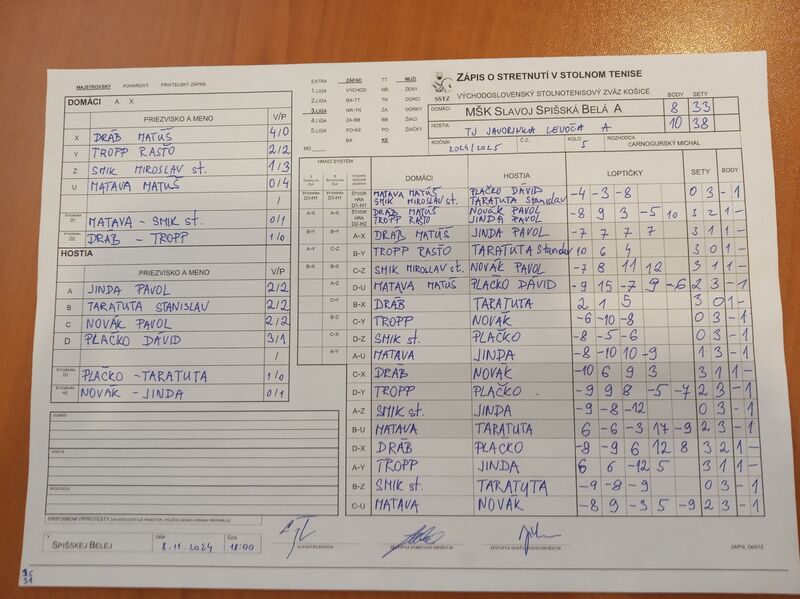 MAJSTROVSKÝ POHÁROVÝ PRIATEĽSKÝ ZÁPAS
DOMÁCI A X
PRIEZVISKO A MENO V/P
X DRÁB MATÚŠ 4/0
Y TROPP RASŤO 2/2
Z SMIK MIROSLAV st. 1/3
U MATAVA MATÚŠ 0/4
/
D1 MATAVA - SMIK st. 0/1
D2 DRÁB - TROPP 1/0
HOSTIA
PRIEZVISKO A MENO V/P
A JINDA PAVOL 2/2
B TARATUTA STANISLAV 2/2
C NOVÁK PAVOL 2/2
D PLAČKO DÁVID 3/1
/
PLAČKO - TARATUTA 1/0
NOVÁK - JINDA 0/1
DOMÁCI
HOSTIA
ROZHODCA
EXTRA ZÁPAD TT MUŽI
1.LIGA VÝCHOD NR ŽENY
2.LIGA BA-TT TN DORCI
3.LIGA NR-TN ZA DORKY
4.LIGA ZA-BB BB ŽIACI
5.LIGA PO-KE PO ŽIAČKY
MO BA KE
SSTZ
ZÁPIS O STRETNUTÍ V STOLNOM TENISE
VÝCHODOSLOVENSKÝ STOLNOTENISOVÝ ZVÄZ KOŠICE
BODY SETY
DOMÁCI MŠK SLAVOJ SPIŠSKÁ BELÁ A 8 33
HOSTIA TJ JAVORINKA LEVOČA A 10 38
ROČNÍK 2024/2025 Č.Z. KOLO 5 ROZHODCA CARNOGURSKÝ MICHAL
HRACÍ SYSTÉM
DOMÁCI HOSTIA LOPTIČKY SETY BODY
MATAVA MATÚŠ PLAČKO DÁVID
SMIK MIROSLAV st. TARATUTA Stanislav -4 -3 -8 0 3 - 1
DRÁB MATÚŠ NOVÁK PAVOL
TROPP RASŤO JINDA PAVOL -8 9 3 -5 10 3 2 1 -
A-X DRÁB MATÚŠ JINDA PAVOL -7 7 7 7 3 1 1 -
B-Y TROPP RASŤO TARATUTA 10 6 4 3 0 1 -
C-Z SMIK MIROSLAV st. NOVÁK PAVOL -7 8 11 12 3 1 1 -
D-U MATAVA MATÚŠ PLAČKO DÁVID -9 15 -7 9 -6 2 3 - 1
B-X DRÁB TARATUTA 2 1 5 3 0 1 -
C-Y TROPP NOVÁK -6 -10 -8 0 3 - 1
D-Z SMIK st. PLAČKO -8 -5 -6 0 3 - 1
A-U MATAVA JINDA -8 -10 10 -9 1 3 - 1
C-X DRÁB NOVÁK -10 6 9 3 3 1 1 -
D-Y TROPP PLAČKO -9 9 8 -5 -7 2 3 - 1
A-Z SMIK st. JINDA -9 -8 -12 0 3 - 1
B-U MATAVA TARATUTA 6 -6 -3 17 -9 2 3 - 1
D-X DRÁB PLAČKO -8 -9 6 12 8 3 2 1 -
A-Y TROPP JINDA 6 6 -12 5 3 1 1 -
B-Z SMIK st. TARATUTA -9 -8 -9 0 3 - 1
C-U MATAVA NOVÁK -8 9 -3 5 -9 2 3 - 1
V SPIŠSKEJ BELEJ DŇA 8.11.2024 ČAS 18:00
HLAVNÝ ROZHODCA
ZÁSTUPCA DOMÁCEHO DRUŽSTVA
ZÁSTUPCA HOSŤUJÚCEHO DRUŽSTVA
ZÁPIS_OSSTZ